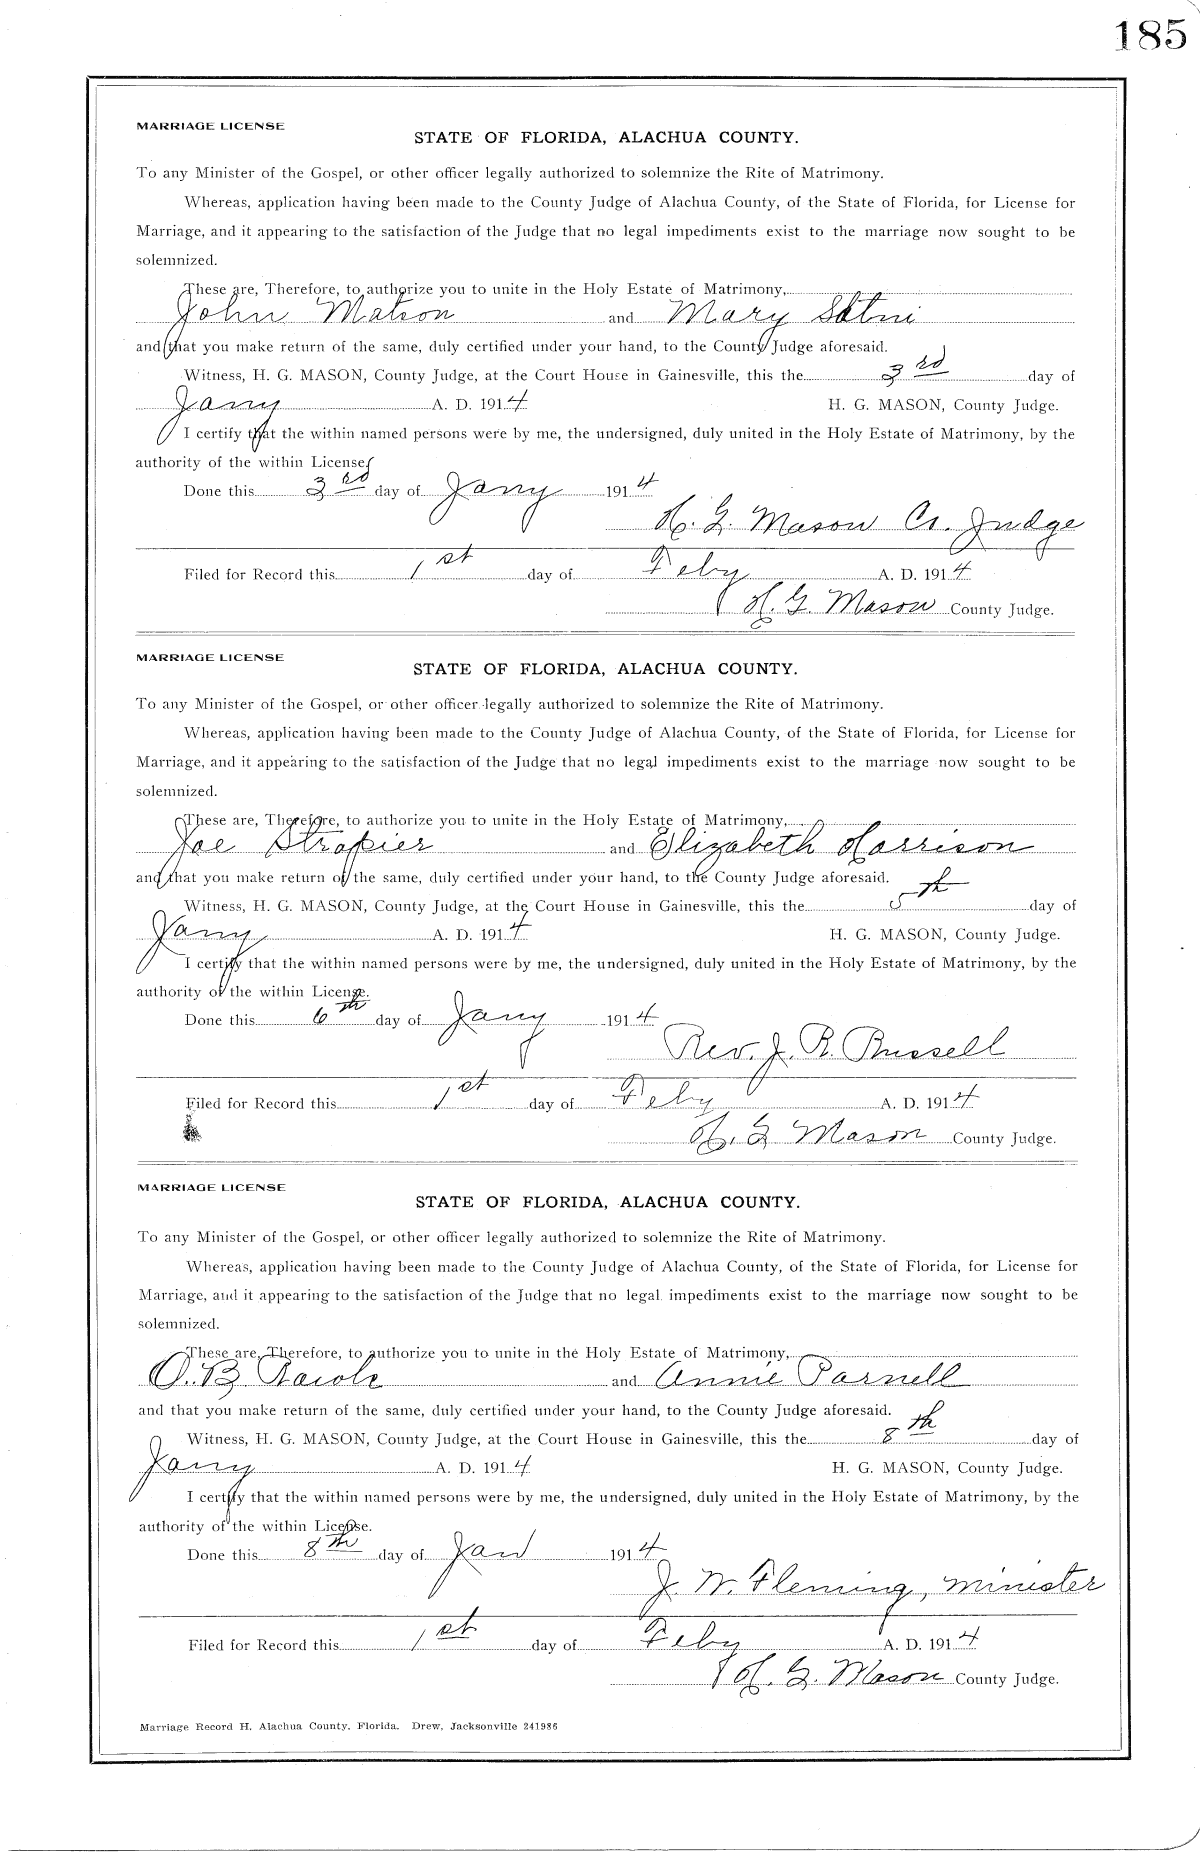 185
MARRIAGE LICENSE
STATE OF FLORIDA, ALACHUA COUNTY.
To any Minister of the Gospel, or other officer legally authorized to solemnize the Rite of Matrimony.
Whereas, application having been made to the County Judge of Alachua County, of the State of Florida, for License for
Marriage, and it appearing to the satisfaction of the Judge that no legal impediments exist to the marriage now sought to be
solemnized.
These are, Therefore, to authorize you to unite in the Holy Estate of Matrimony,
John Matson and Mary
and that you make return of the same, duly certified under your hand, to the County Judge aforesaid.
Witness, H. G. MASON, County Judge, at the Court House in Gainesville, this the 3rd day of
Jany A. D. 1914 H. G. MASON, County Judge.
I certify that the within named persons were by me, the undersigned, duly united in the Holy Estate of Matrimony, by the
authority of the within License.
Done this 3rd day of Jany 1914
H. G. Mason Co. Judge
Filed for Record this 1st day of Feby A. D. 1914
H. G. Mason County Judge.
MARRIAGE LICENSE
STATE OF FLORIDA, ALACHUA COUNTY.
To any Minister of the Gospel, or other officer legally authorized to solemnize the Rite of Matrimony.
Whereas, application having been made to the County Judge of Alachua County, of the State of Florida, for License for
Marriage, and it appearing to the satisfaction of the Judge that no legal impediments exist to the marriage now sought to be
solemnized.
These are, Therefore, to authorize you to unite in the Holy Estate of Matrimony,
Joe Strapier and Elizabeth Harrison
and that you make return of the same, duly certified under your hand, to the County Judge aforesaid.
Witness, H. G. MASON, County Judge, at the Court House in Gainesville, this the 5th day of
Jany A. D. 1914 H. G. MASON, County Judge.
I certify that the within named persons were by me, the undersigned, duly united in the Holy Estate of Matrimony, by the
authority of the within License.
Done this 6th day of Jany 1914
Rev. J. R. Russell
Filed for Record this 1st day of Feby A. D. 1914
H. G Mason County Judge.
MARRIAGE LICENSE
STATE OF FLORIDA, ALACHUA COUNTY.
To any Minister of the Gospel, or other officer legally authorized to solemnize the Rite of Matrimony.
Whereas, application having been made to the County Judge of Alachua County, of the State of Florida, for License for
Marriage, and it appearing to the satisfaction of the Judge that no legal impediments exist to the marriage now sought to be
solemnized.
These are, Therefore, to authorize you to unite in the Holy Estate of Matrimony,
O. B and Annie Parnell
and that you make return of the same, duly certified under your hand, to the County Judge aforesaid.
Witness, H. G. MASON, County Judge, at the Court House in Gainesville, this the 8th day of
Jany A. D. 1914 H. G. MASON, County Judge.
I certify that the within named persons were by me, the undersigned, duly united in the Holy Estate of Matrimony, by the
authority of the within License.
Done this 8th day of Jan 1914
J. W. Fleming, minister
Filed for Record this 1st day of Feby A. D. 1914
H. G. Mason County Judge.
Marriage Record H, Alachua County, Florida. Drew, Jacksonville 241986